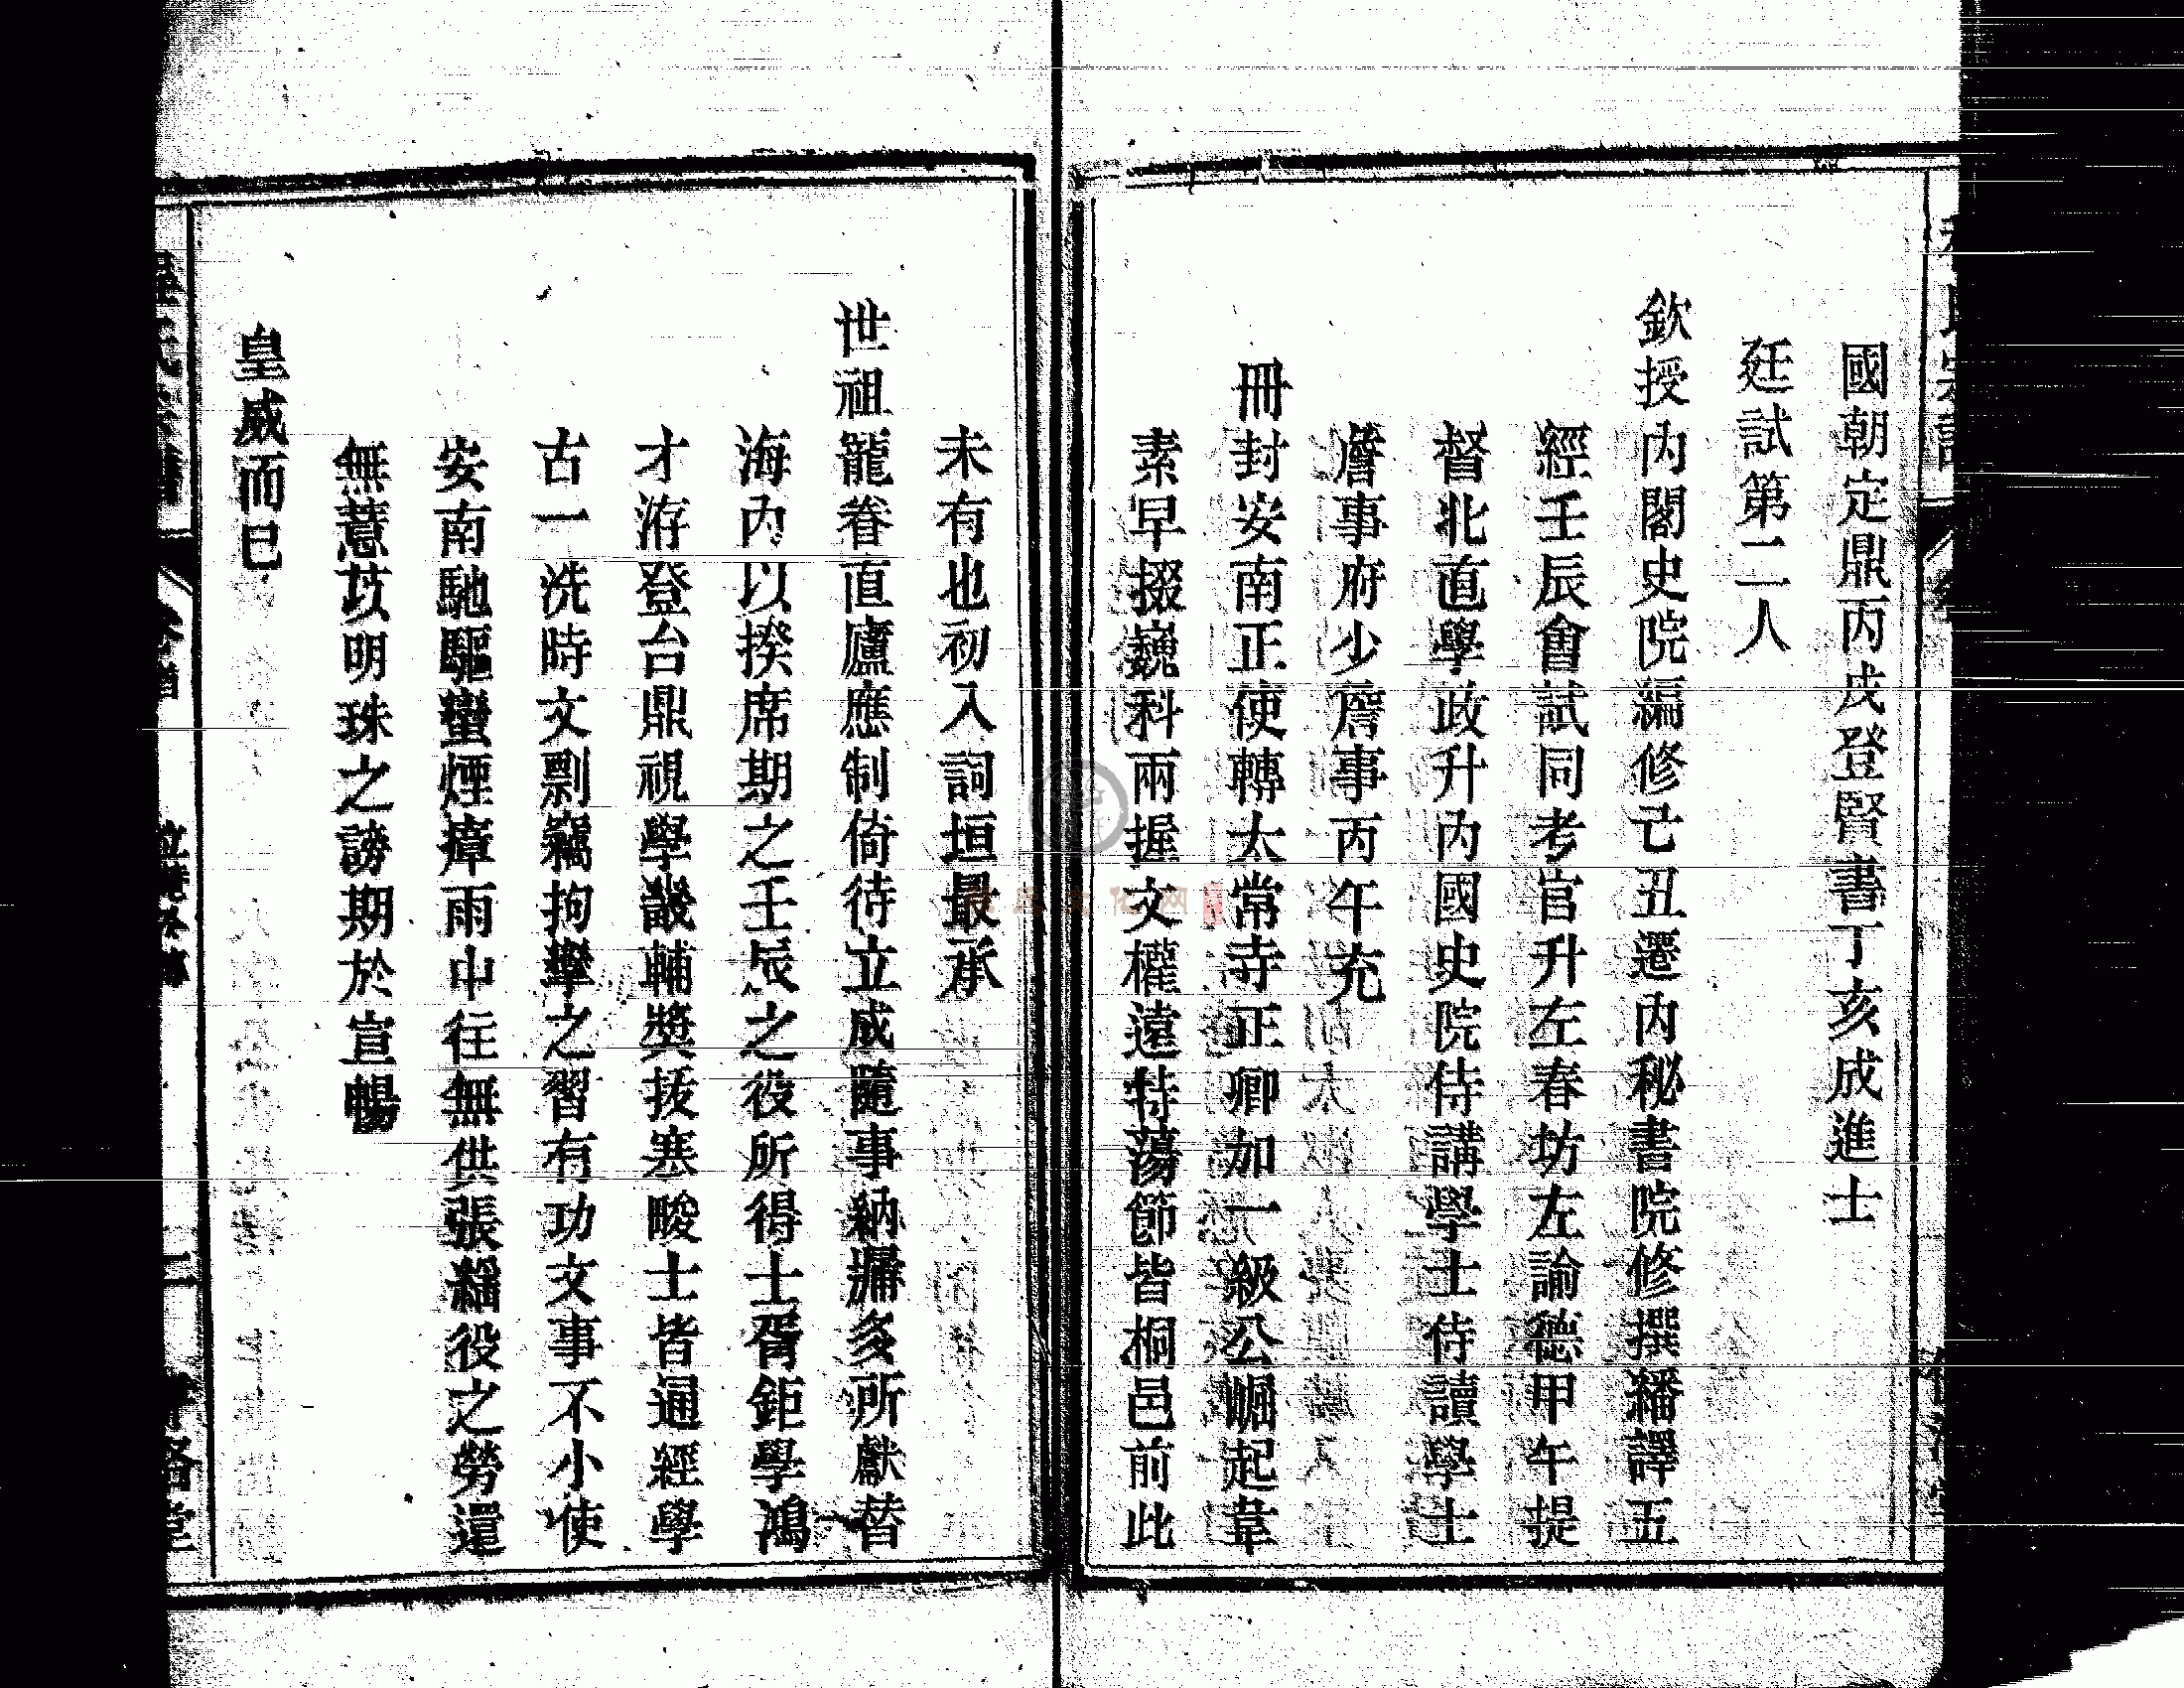 國朝定鼎丙戌登賢書丁亥成進士
廷試第二人
欽授内閣史院編修己丑遷内秘書院修撰繙譯五
經壬辰會試同考官升左春坊左諭德甲午提
督北直學政升内國史院侍講學士侍讀學士
詹事府少詹事丙午充
冊封安南正使轉太常寺正卿加一級公崛起韋
素早掇巍科兩握文權遠持蕩節皆桐邑前此
未有也初入詞垣最承
世祖寵眷直廬應制倚待立成隨事納牖多所獻替
海内以揆席期之壬辰之役所得士胥鉅學鴻
才洊登台鼎視學畿輔獎拔寒畯士皆通經學
古一洗時文剽竊拘攣之習有功文事不小使
安南馳驅蠻煙瘴雨中往無供張繦役之勞還
無薏苡明珠之謗期於宣暢
皇威而已